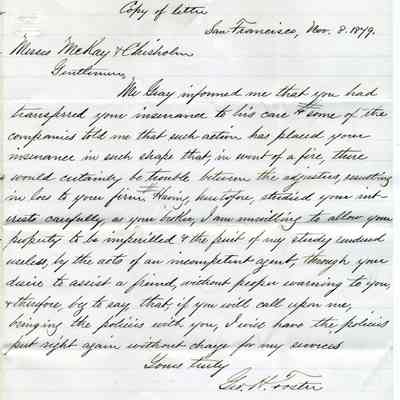 Copy of letter
San Francisco, Nov. 8. 1879.
Messrs McKay & Chisholm
Gentlemen,
Mr Gray informed me that you had
transferred your insurance to his care & some of the
companies told me that such action has placed your
insurance in such shape that, in event of a fire, there
would certainly be trouble between the adjusters, resulting
in loss to your firm. Having heretofore, studied your int-
erests carefully, as your broker, I am unwilling to allow your
property to be imperilled & the fruit of my study rendered
useless, by the acts of an incompetent agent, through your
desire to assist a friend, without proper warning to you,
& therefore, beg to say that, if you will call upon me,
bringing the policies with you, I will have the policies
put right again without charge for my services
Yours truly
Geo. H. Foster